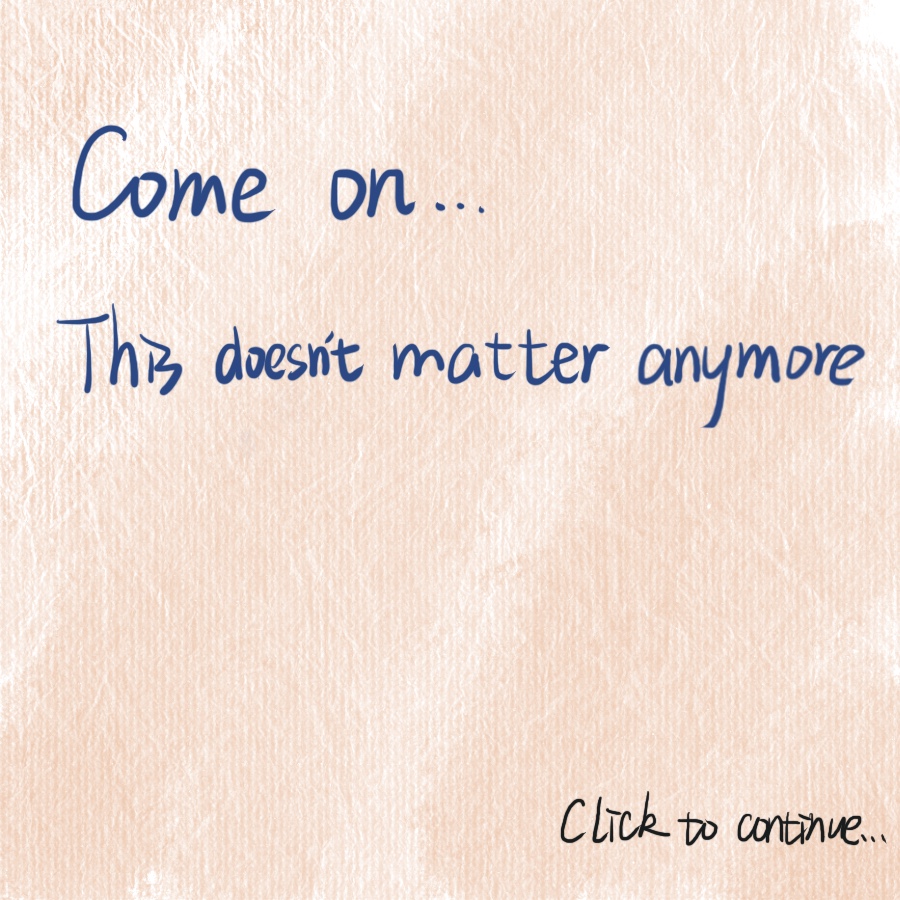 Come on...
This doesn't matter anymore
Click to continue...